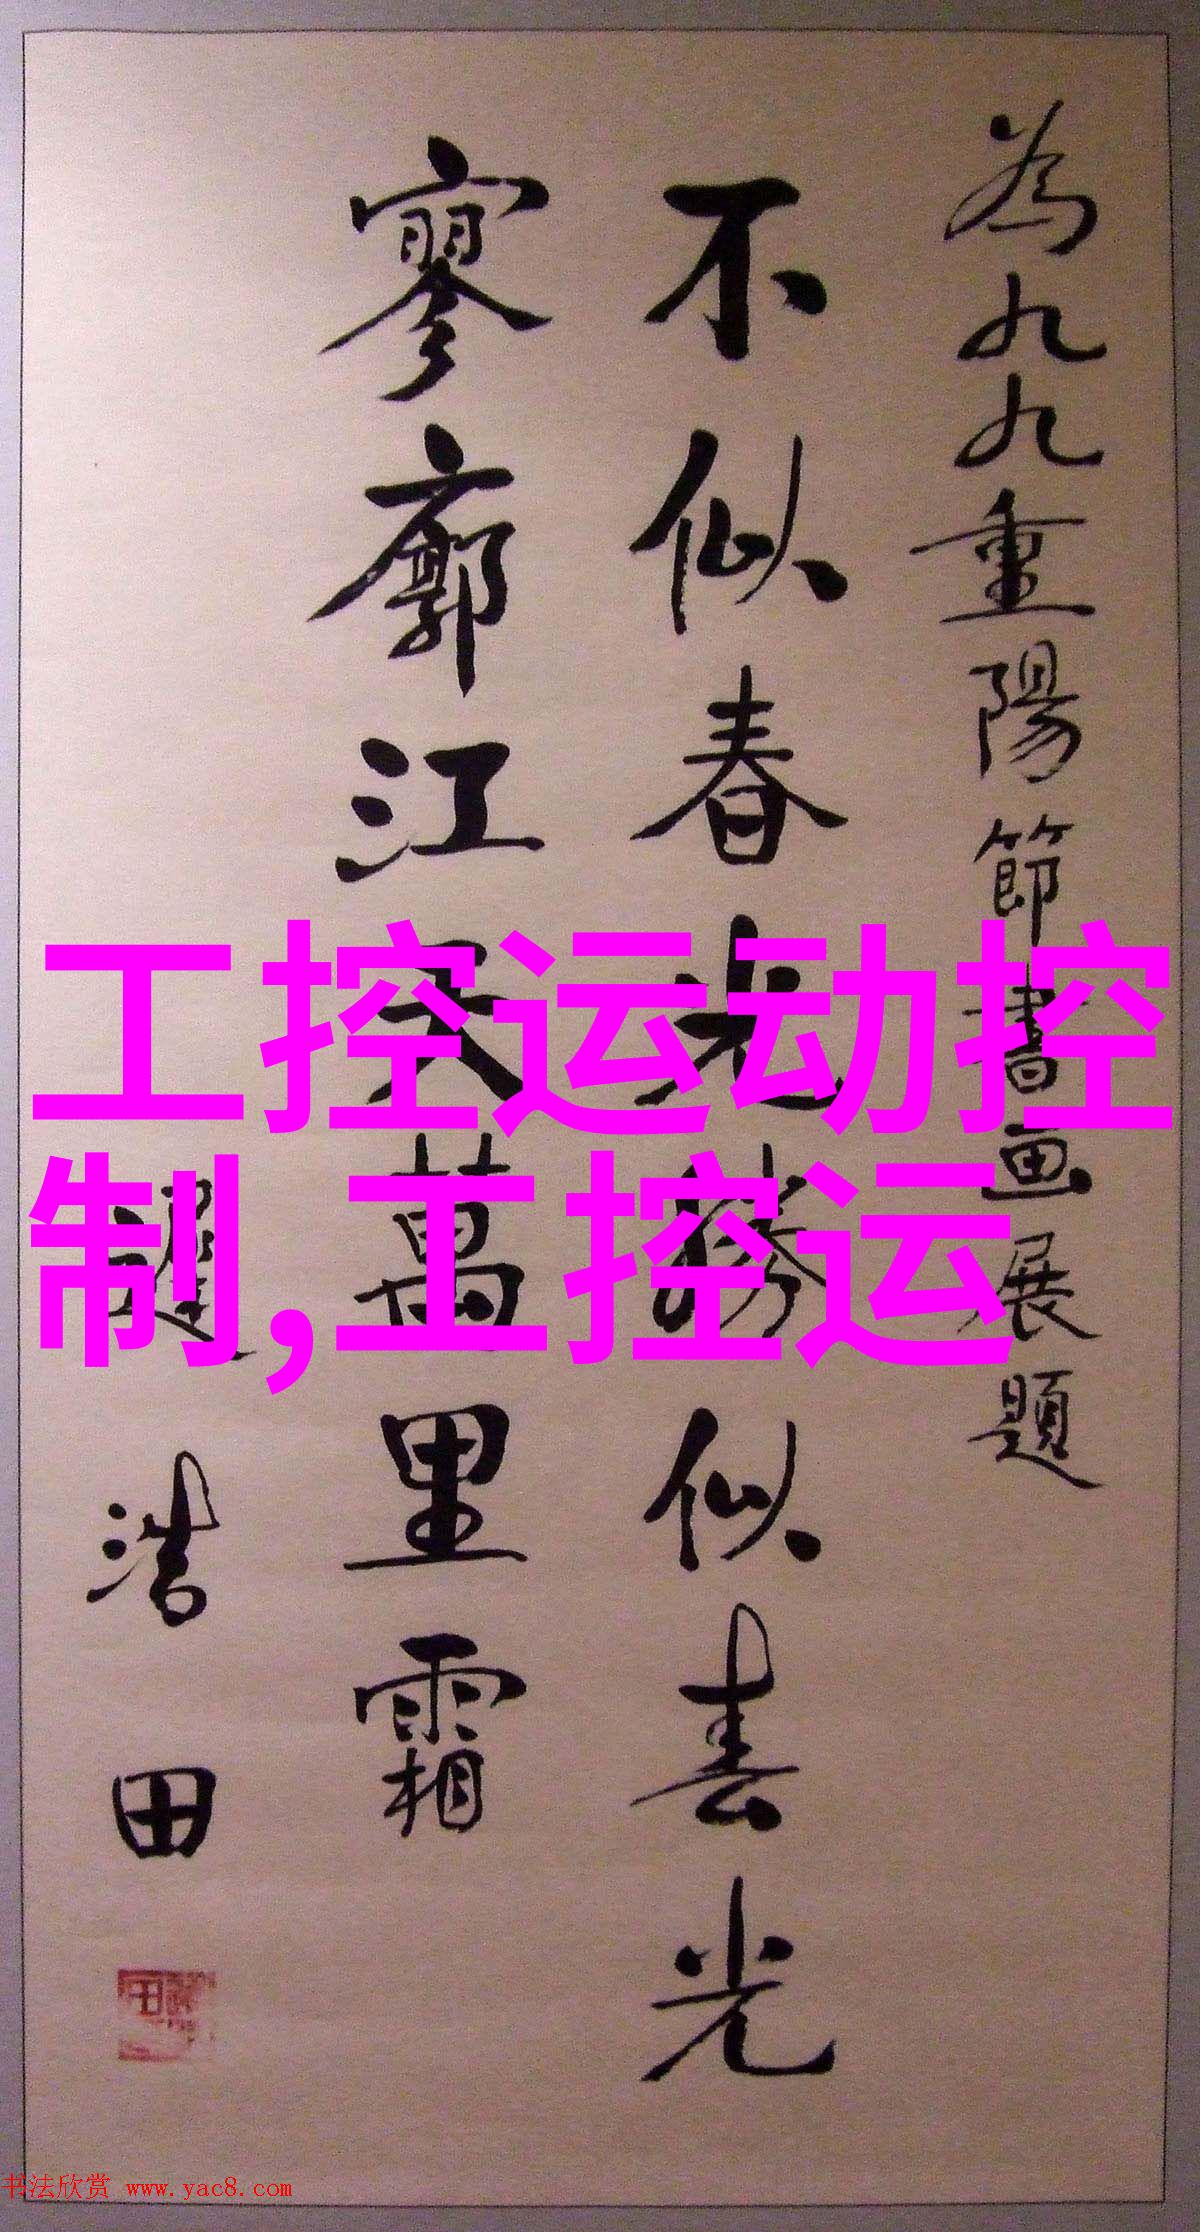 為九九重陽節書画展題
不似春光勝似春光
寥廓江天萬里霜
浩田
工控运动控
制,工控运
书法欣赏 www.yac8.com